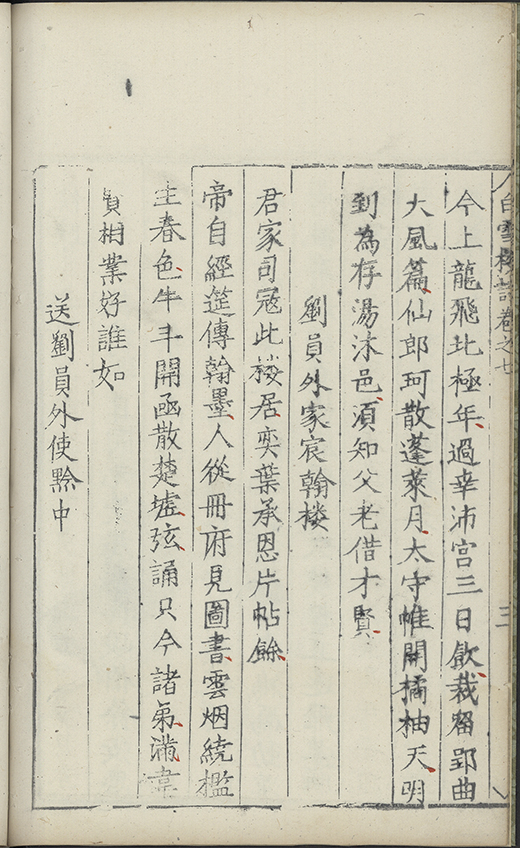 白雪樓詩卷之七
三
今上龍飛北極年過幸沛宮三日飲裁留郢曲
大風篇仙郎珂散蓬萊月太守帷開橘柚天明
到為存湯沐邑須知父老借才賢
劉員外家宸翰樓
君家司寇此樓居奕葉承恩片帖餘
帝自經筵傳翰墨人從冊府見圖書雲烟繞檻
生春色牛斗開函散楚墟弦誦只今諸弟滿韋
賢相業好誰如
送劉員外使黔中